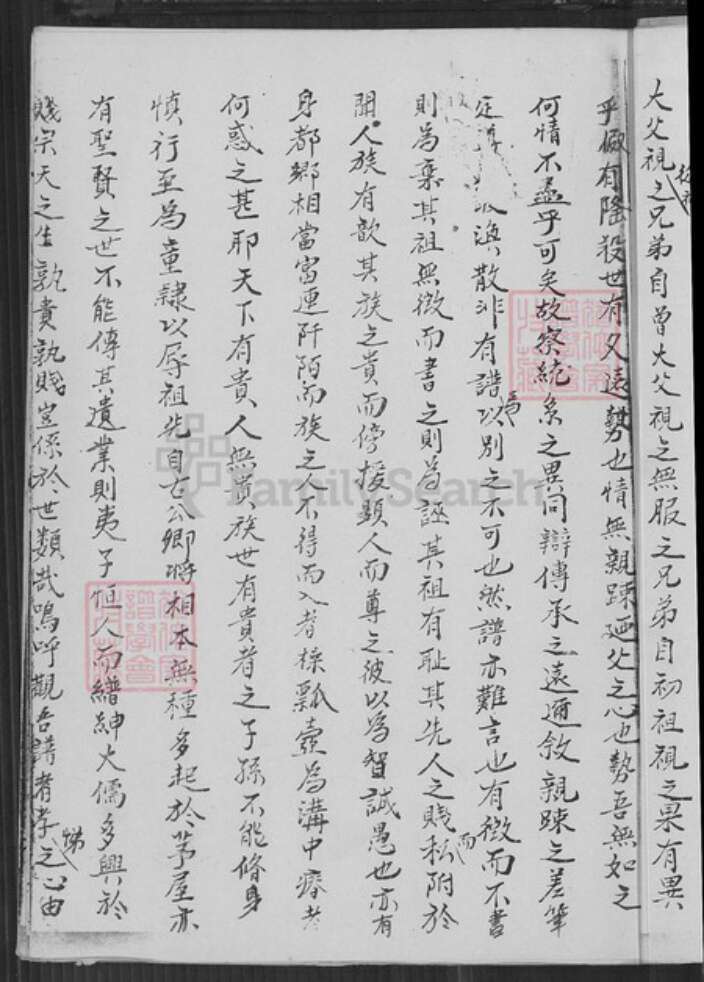 大父視之兄弟自曾大父視之無服之兄弟自初祖視之果有異
乎傚有隆殺世有久遠勢也情無親踈廼父之心也勢吾無如之
何情不盡乎可矣故察統系之異同辯傳承之遠邇敘親踈之差筆
定 渙散非有譜以別之不可也然譜亦難言也有徵而不書
則為棄其祖無徵而書之則為誣其祖有耻其先人之賤私附於
聞人族有歆其族之貴而傍援顯人而尊之彼以為智誠愚也亦有
身都鄉相當富連阡陌而族之人不得而入者操瓢壺為溝中瘠者
何惑之甚耶天下有貴人無貴族世有貴者之子孫不能脩身
慎行至為童隸以辱祖先自古公卿將相本無種多起於茅屋亦
有聖賢之世不能傳其遺業則夷子恒人而縉紳大儒多興於
賤宗天之生孰貴孰賤豈係於世類哉嗚呼觀吾譜者孝悌之心由
FamilySearch